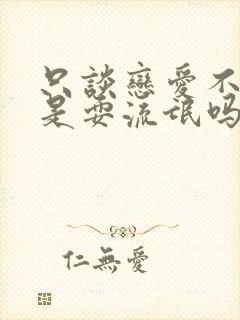 只談戀愛不
是耍流氓吗
仁無愛